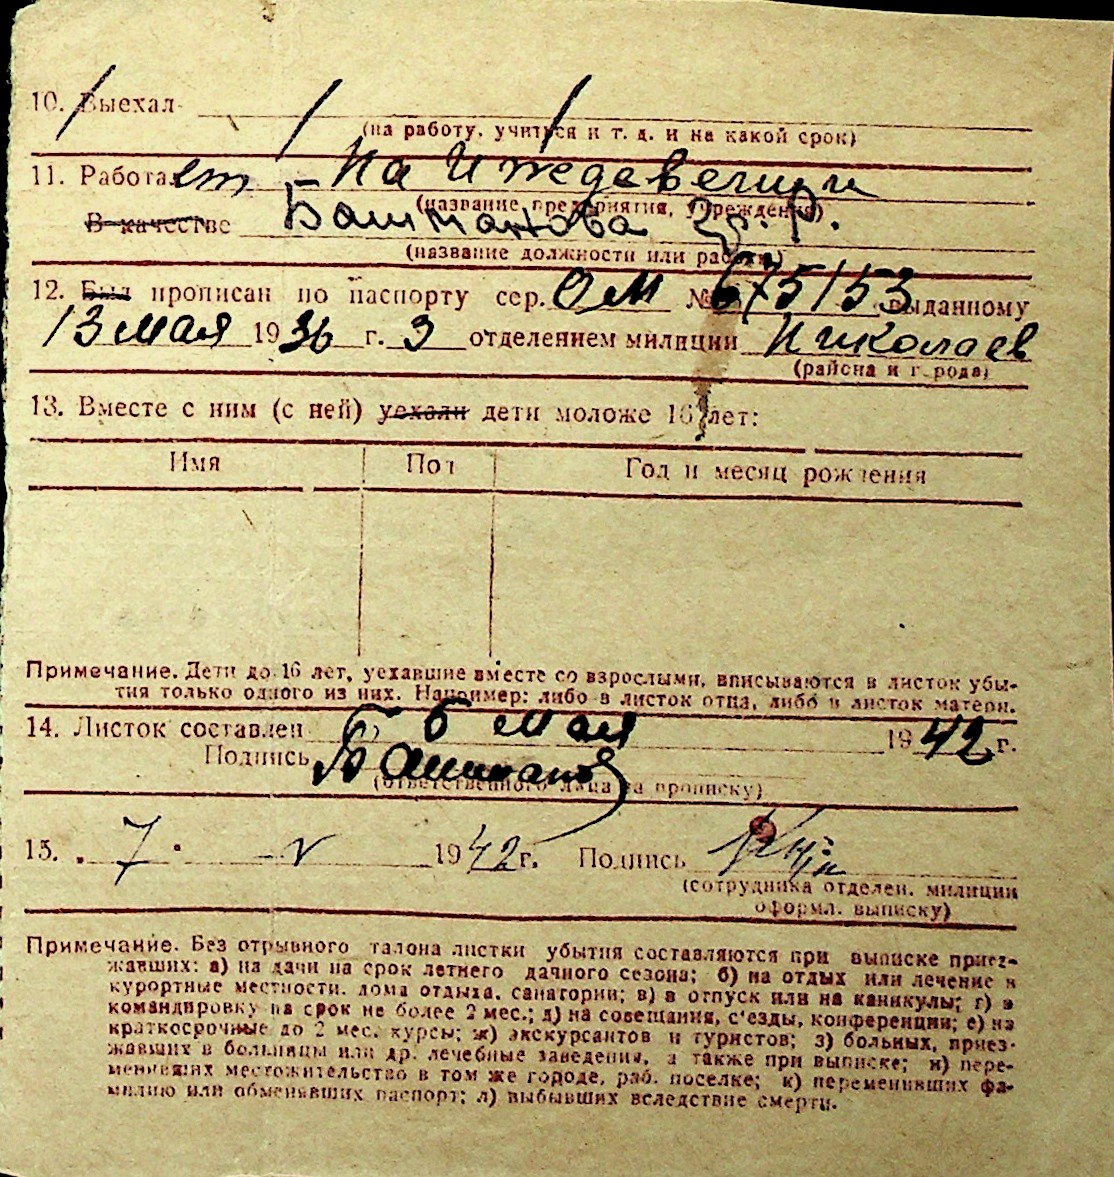 10. Выехал
(на работу, учиться и т. д. и на какой срок)
11. Работает На Иждевении
(название предприятия, учреждения)
В качестве Башмакова Гр. Р.
(название должности или работы)
12. Был прописан по паспорту сер. ОМ № 675153 выданному
13 мая 1936 г. 3 отделением милиции Николаев
(района и города)
13. Вместе с ним (с ней) уехали дети моложе 16 лет:
Имя Пол Год и месяц рождения
Примечание. Дети до 16 лет, уехавшие вместе со взрослыми, вписываются в листок убы-
тия только одного из них. Например: либо в листок отца, либо в листок матери.
14. Листок составлен 6 мая 1942 г.
Подпись
(ответственного лица за прописку)
15. 7 V 1942 г. Подпись
(сотрудника отделен. милиции
оформл. выписку)
Примечание. Без отрывного талона листки убытия составляются при выписке приез-
жавших: а) на дачи на срок летнего дачного сезона; б) на отдых или лечение в
курортные местности, дома отдыха, санатории; в) в отпуск или на каникулы; г) в
командировку на срок не более 2 мес.; д) на совещания, с'езды, конференции; е) на
краткосрочные до 2 мес. курсы; ж) экскурсантов и туристов; з) больных, приез-
жавших в больницы или др. лечебные заведения, а также при выписке; и) пере-
менивших местожительство в том же городе, раб. поселке; к) переменивших фа-
милию или обменявших паспорт; л) выбывших вследствие смерти.